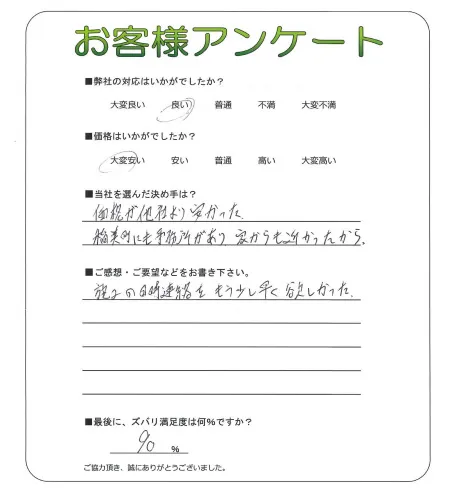 お客様アンケート
■弊社の対応はいかがでしたか？
大変良い 良い 普通 不満 大変不満
■価格はいかがでしたか？
大変安い 安い 普通 高い 大変高い
■当社を選んだ決め手は？
価格が他社より安かった
稲美町にも事務所があり 家からも近かったから。
■ご感想・ご要望などをお書き下さい。
施工の日時連絡をもう少し早く欲しかった。
■最後に、ズバリ満足度は何％ですか？
90 ％
ご協力頂き、誠にありがとうございました。